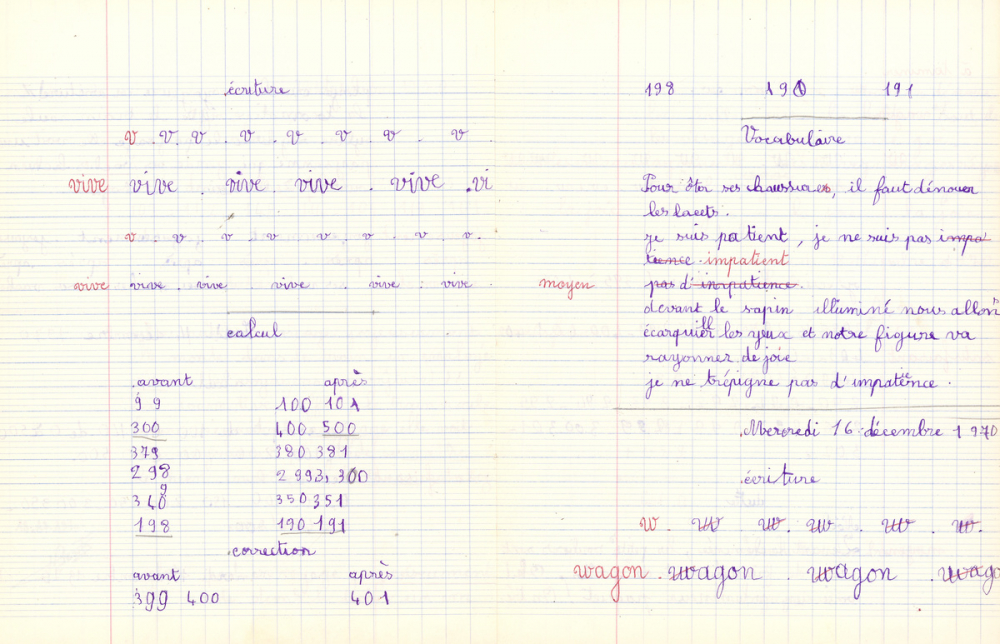 écriture
v . v . v . v . v . v . v . v .
vive vive . vive . vive . vive . vi
v . v . v . v . v . v . v . v .
vive vive . vive . vive . vive . vive .
calcul
avant après
99 100 101
300 400 500
379 380 381
298 2993, 300
349 350 351
198 190 191
correction
avant après
399 400 401
198 190 191
Vocabulaire
Pour ôter ses chaussures, il faut dénouer
les lacets.
je suis patient, je ne suis pas impa
tience . impatient
moyen pas d'impatience.
devant le sapin illuminé nous allons
écarquiller les yeux et notre figure va
rayonner de joie
je ne trépigne pas d'impatience.
Mercredi 16 décembre 1970
écriture
w . w . w . w . w . w .
wagon . wagon . wagon . wago